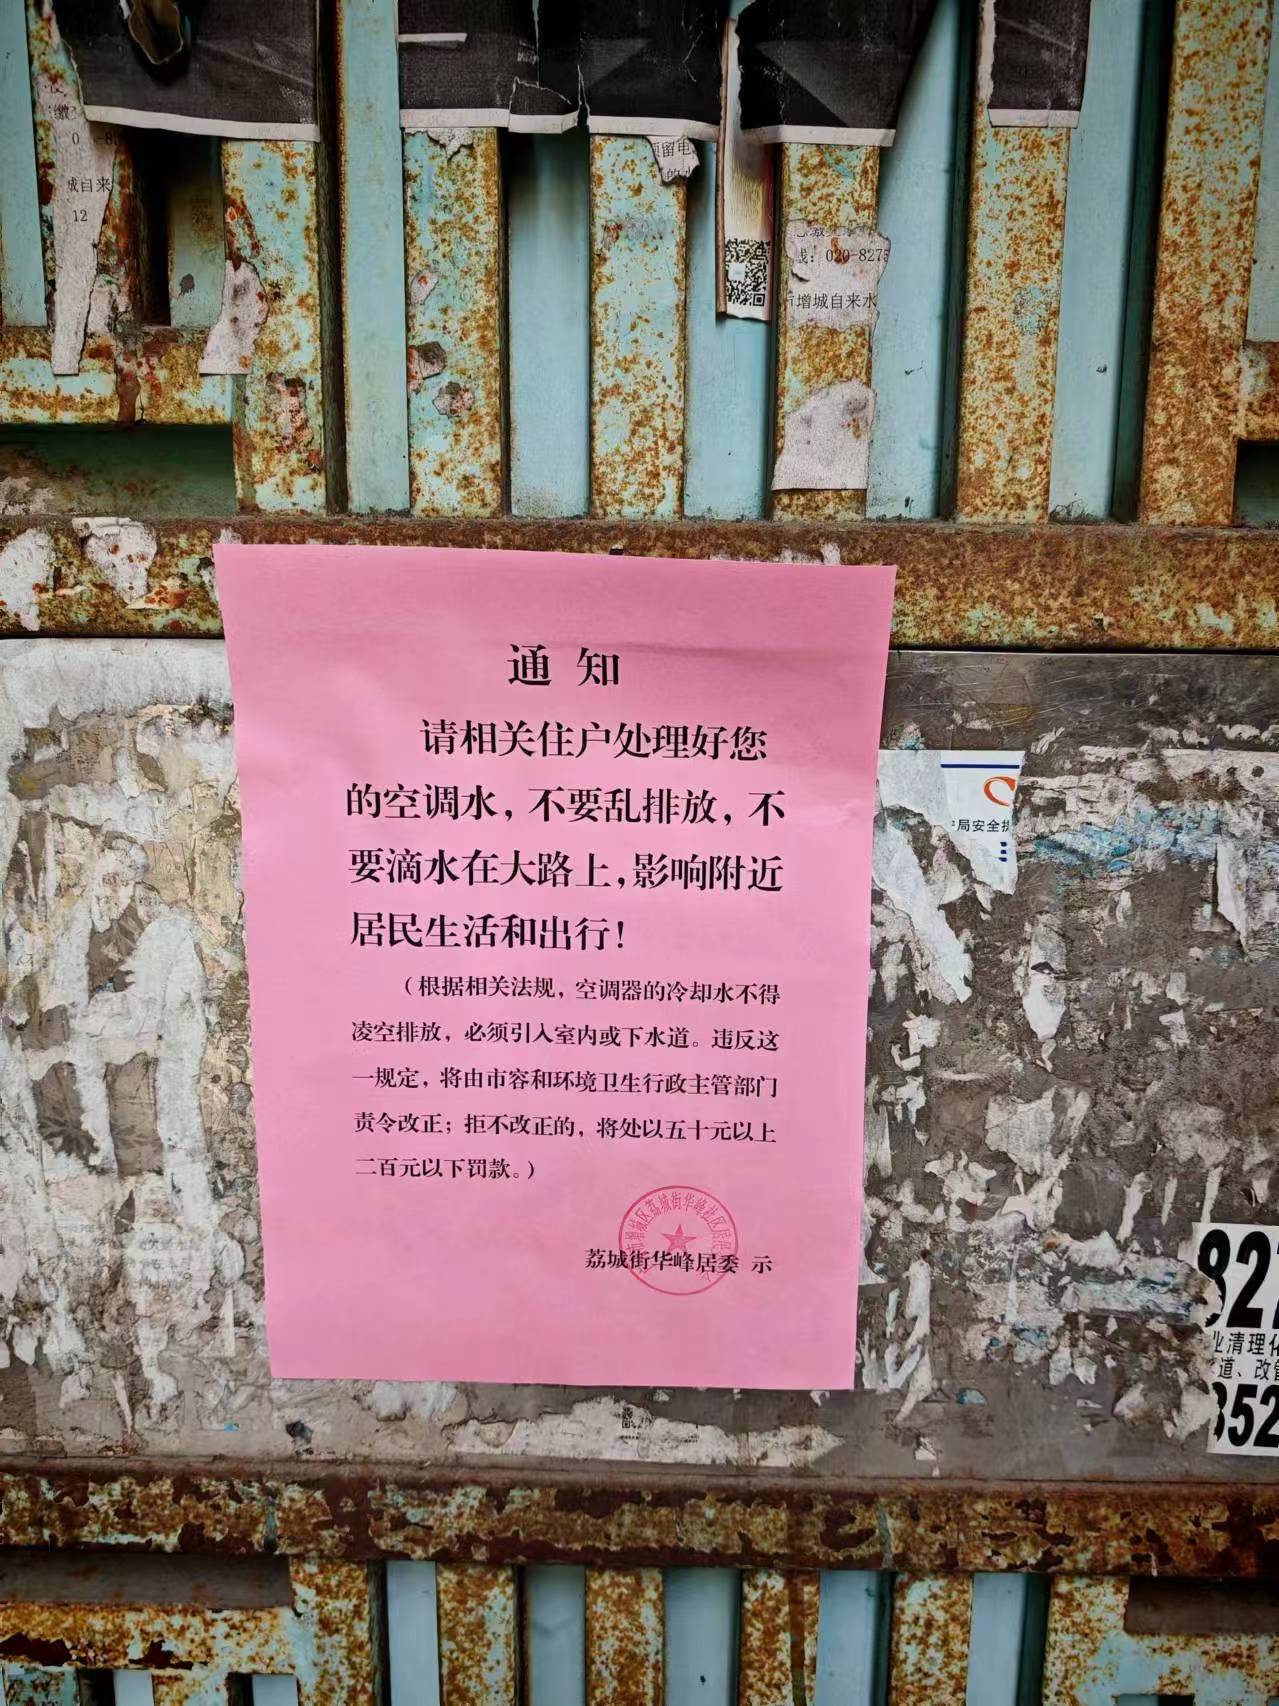 缴
0
-8
城自来
12
留电
线：020-8275
增城自来水
通 知
请相关住户处理好您
的空调水，不要乱排放，不
要滴水在大路上，影响附近
居民生活和出行！
（根据相关法规，空调器的冷却水不得
凌空排放，必须引入室内或下水道。违反这
一规定，将由市容和环境卫生行政主管部门
责令改正；拒不改正的，将处以五十元以上
二百元以下罚款。）
增城区荔城街华峰社区居民
荔城街华峰居委 示
局安全执
827
业清理化
道、改管
352